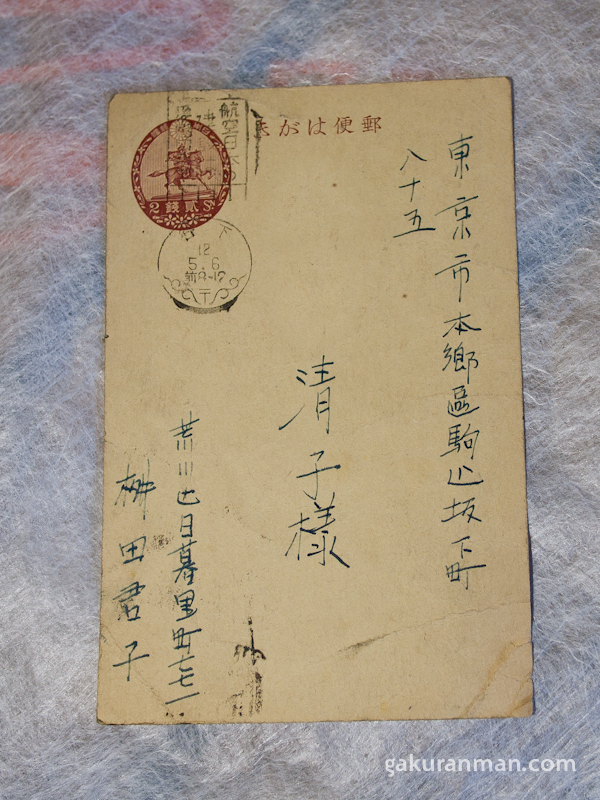 郵便はがき
2 錢貳 Sn
12
5.6
東京市本郷區駒込坂下町
八十五
清子様
荒川区日暮里町
桝田君子
gakuranman.com